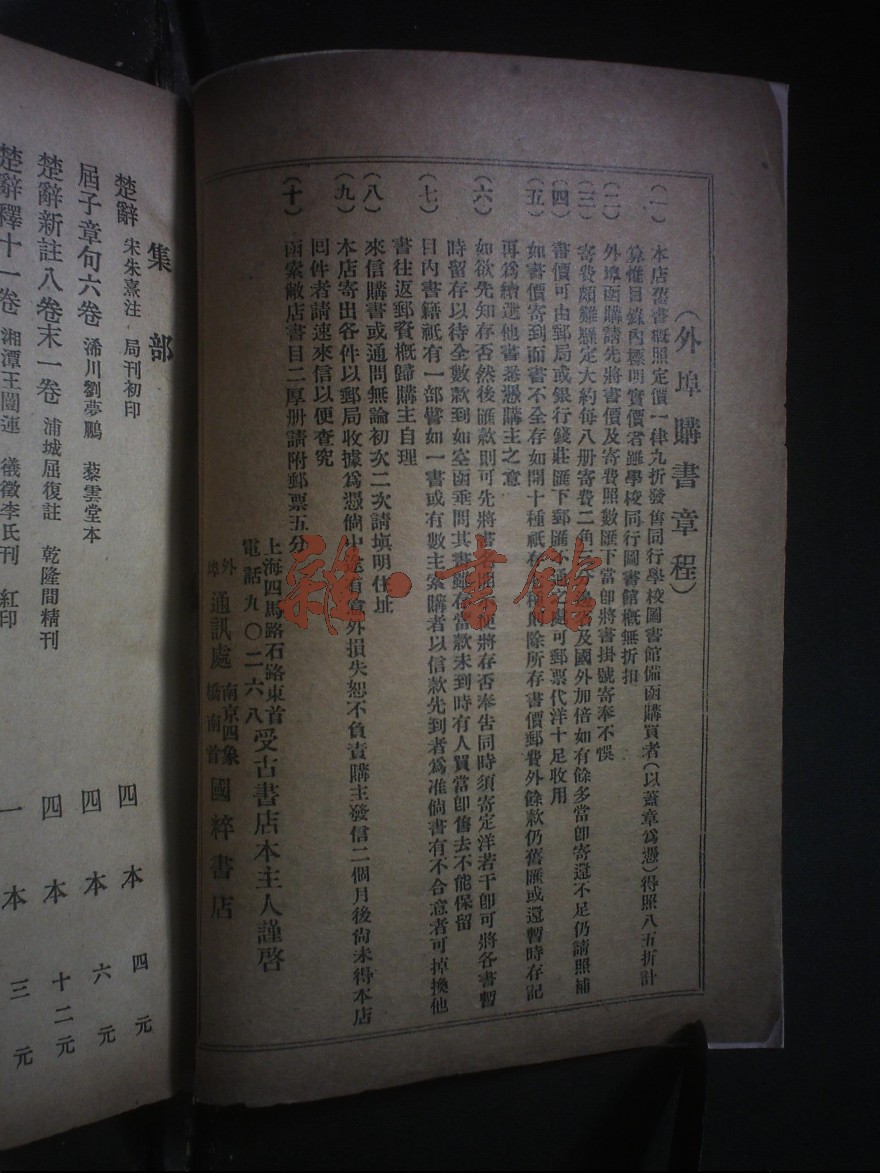 （外埠購書章程）
（一）本店舊書概照定價一律九折發售同行學校圖書館備函購買者（以蓋章爲憑）得照八五折計
算惟目錄內標明實價者雖學校同行圖書館概無折扣
（二）外埠函購請先將書價及寄費照數匯下當卽將書掛號寄奉不悞
（三）寄費頗難懸定大約每八册寄費二角及國外加倍如有餘多當卽寄還不足仍請照補
（四）書價可由郵局或銀行錢莊匯下郵匯不通之處可郵票代洋十足收用
（五）如書價寄到而書不全存如開十種祇存種則除所存書價郵費外餘款仍舊匯或還暫時存記
再爲續選他書悉憑購主之意
（六）如欲先知存否然後匯款則可先將書名開便將存否奉告同時須寄定洋若干卽可將各書暫
時留存以待全數款到如空函垂問其書雖存當款未到時有人買當卽售去不能保留
（七）目內書籍祇有一部譬如一書或有數主案購者以信款先到者爲准倘書有不合意者可掉換他
書往返郵資概歸購主自理
（八）來信購書或通問無論初次二次請塡明住址
（九）本店寄出各件以郵局收據爲憑倘中途有意外損失恕不負責購主發信二個月後尙未得本店
囘件者請速來信以便查究
（十）函索敝店書目二厚册請附郵票五分
上海四馬路石路東首受古書店本主人謹啓
電話九〇二六八
外埠通訊處 南京四象橋南首 國粹書店
雜·書館
集部
楚辭 宋朱熹注 局刊初印 四本 四元
屈子章句六卷 浠川劉夢鵬 藜雲堂本 四本 六元
楚辭新註八卷末一卷 浦城屈復註 乾隆間精刊 四本 十二元
楚辭釋十一卷 湘潭王闓運 儀徵李氏刊 紅印 一本 三元